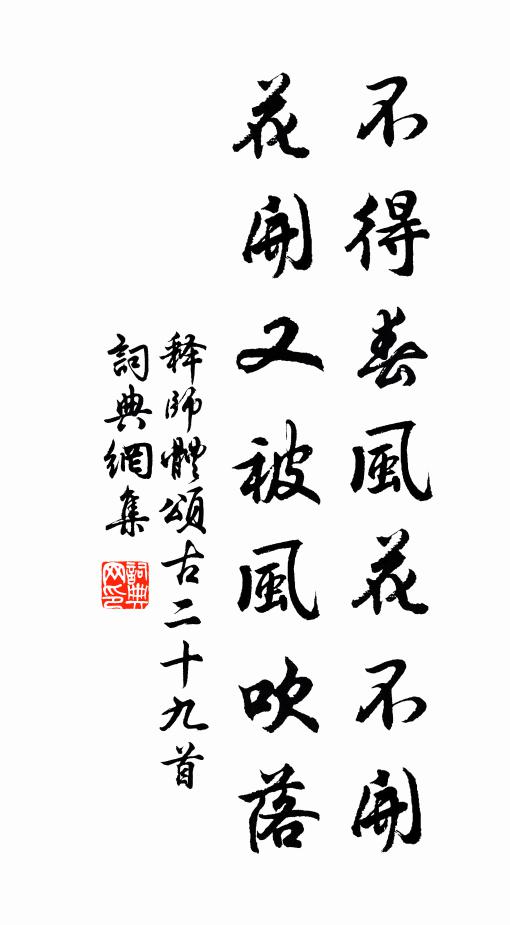 不得春風花不開
花開又被風吹落
释師體頌古二十九首
詞典網集
詞典网印